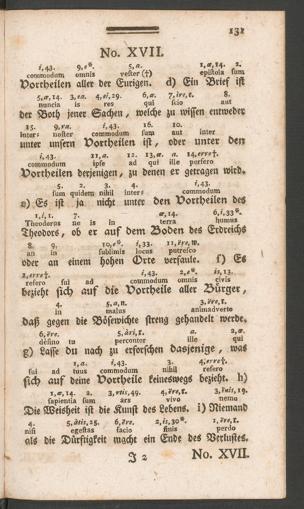 131
No. XVII.
i,43. 9,e*. 5,a. 1,a,14. 2.
commodum omnis vester (†) epistola sum
Vortheilen aller der Eurigen. d) Ein Brief ist
5,a,14. 3,ea. 4,ei,29. 6,a. 7,ire,t. 8.
nuncia is res qui scio aut
der Both jener Sachen, welche zu wissen entweder
15. 9,ea. i,43. 16. 10.
inter noster commodum sum aut inter
unter unsern Vortheilen ist, oder unter den
i,43. 11,a. 12. 13,a. a. 14,erre†.
commodum ipse ad qui ille perfero
Vortheilen derjenigen, zu denen er getragen wird.
5. 2. 3. 4. i,43.
sum quidem nihil inters commodum
e) Es ist ja nicht unter den Vortheilen des
1,i,1. 7. a,14. 6,i,33*.
Theodorus ne is in terra humus
Theodors, ob er auf dem Boden des Erdreichs
8. 9. 10,e*. i,33. 11,ĕre,w.
an in sublimis locus putresco
oder an einem hohen Orte verfaule. f) Es
2,erre†. i,43. 2,e*. is,13.
refero fui ad commodum omnis civis
bezieht sich auf die Vortheile aller Bürger,
4. 5,a,n. 3,ĕre,t.
in malus animadverto
daß gegen die Bösewichte streng gehandelt werde.
6,ĕre. 5,ari,t. a. 2,a.
desino tu percontor ille qui
g) Lasse du nach zu erforschen dasjenige, was
1,a. i,43. 3. 4,erre†.
fui ad tuus commodum nihil refero
sich auf deine Vortheile keineswegs bezieht. h)
1,a,14. 2. 3,rtis,49. 4,ĕre,t. 3,inis,19.
sapientia sum ars vivo nemo
Die Weisheit ist die Kunst des Lebens. i) Niemand
4. 5,atis,25. 6,ĕre. 2,is,30*. 1,ĕre,t.
nisi egestas facio finis perdo
als die Dürftigkeit macht ein Ende des Verlustes.
J 2 No. XVII.